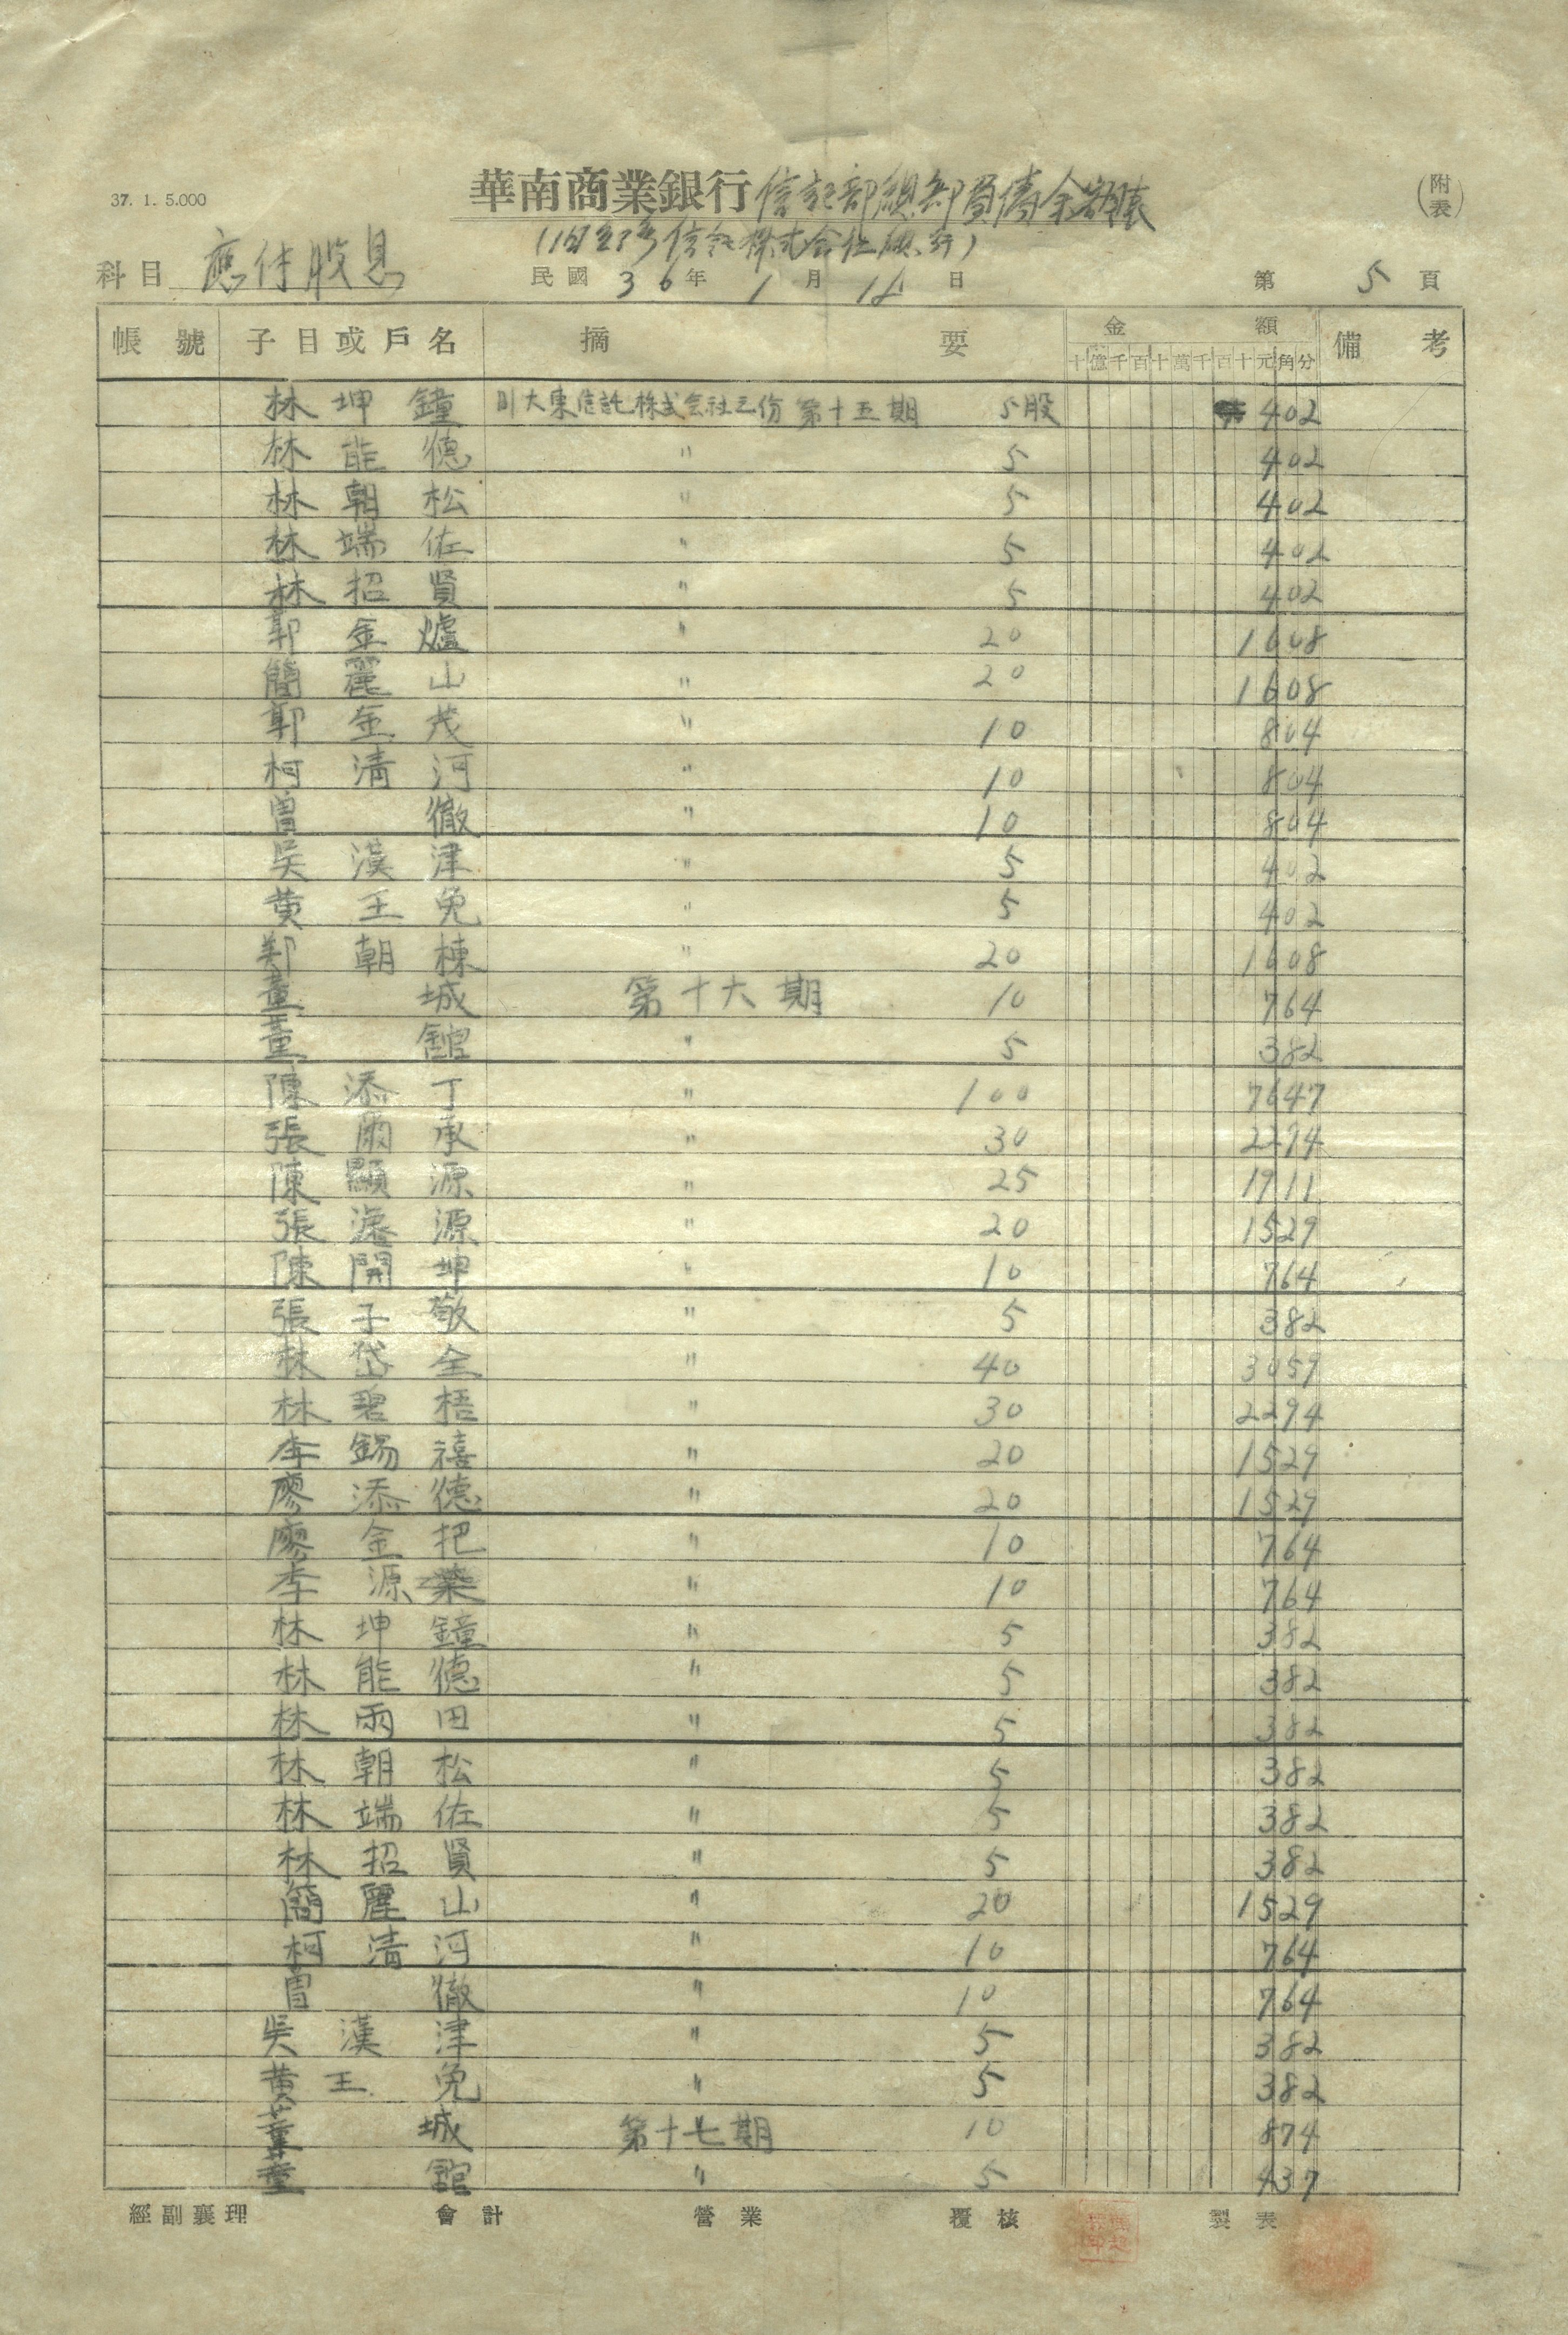 37. 1. 5.000
華南商業銀行信託部總部負債余額表
(附表)
科目 應付股息
民國 36年 1月 日
第 5 頁
帳號 子目或戶名 摘要 金額 備考
十億千百十萬千百十元角分
林坤鐘 大東信託株式会社之份 第十五期 5股 402
林能德 〃 5 402
林朝松 〃 5 402
林端佐 〃 5 402
林招賢 〃 5 402
郭金爐 〃 20 1608
簡麗山 〃 20 1608
郭金茂 〃 10 804
柯清河 〃 10 804
曾徹 〃 10 804
吳漢津 〃 5 402
黃王兔 〃 5 402
鄭朝棟 〃 20 1608
童城 第十六期 10 764
童舘 〃 5 382
陳添丁 〃 100 7647
張爾承 〃 30 2294
陳顯源 〃 25 1911
張源 〃 20 1529
陳開坤 〃 10 764
張子敬 〃 5 382
林岱全 〃 40 3059
林碧梧 〃 30 2294
李錫禧 〃 20 1529
廖添德 〃 20 1529
廖金把 〃 10 764
李源棻 〃 10 764
林坤鐘 〃 5 382
林能德 〃 5 382
林雨田 〃 5 382
林朝松 〃 5 382
林端佐 〃 5 382
林招賢 〃 5 382
簡麗山 〃 20 1529
柯清河 〃 10 764
曾徹 〃 10 764
吳漢津 〃 5 382
黃王兔 〃 5 382
童城 第十七期 10 874
童舘 〃 5 437
經副襄理 會計 營業 覆核 製表